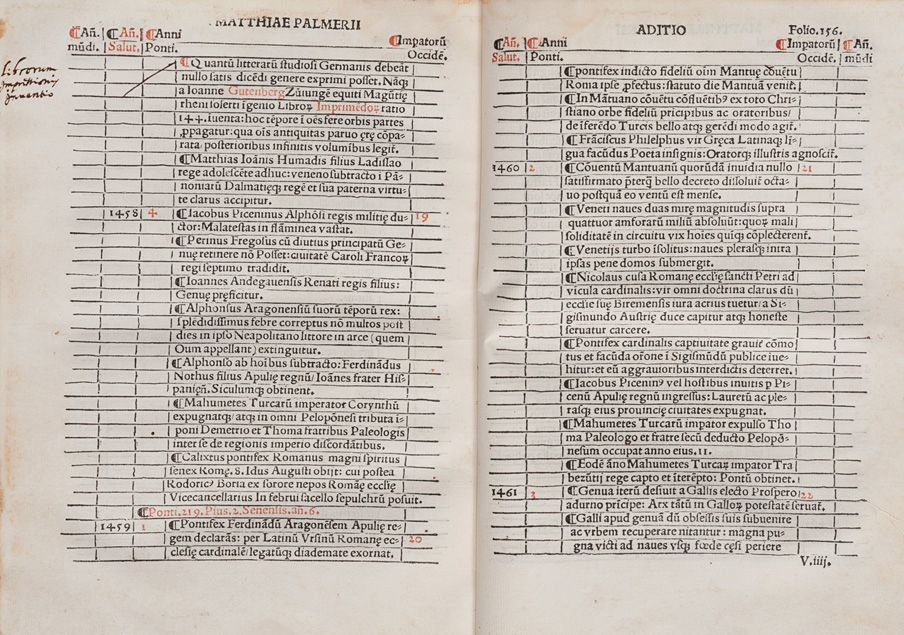 MATTHIAE PALMERII
¶Añ. ¶Añ. ¶Anni ¶Impatorũ
mũdi. Salut. Ponti. Occidẽ.
Librorum
Impressionis
Inventio
¶Quantũ litterarũ studiosi Germanis debeãt
nullo satis dicẽdi genere exprimi posset. Nãq
a Ioanne Gutenberg Zũiungẽ equiti Magũtię
rheni solerti ĩgenio Libroꝝ Imprimẽdoꝝ ratio
144. iuenta: hoc tẽpore ĩ oẽs fere orbis partes
ꝓpagatur: qua oĩs antiquitas paruo ęrę cõpa⸗
rata/ posterioribus infinitis volumibus legit.
¶Matthias Ioãnis Humadis filius Ladislao
rege adolescẽte adhuc: veneno subtracto ĩ Pã⸗
noniarũ Dalmatięq; regẽ et sua paterna virtu⸗
te clarus accipitur.
1458 4 ¶Iacobus Piceninus Alphõsi regis militię du⸗ 19
ctor: Malatestas in flãminea vastat.
¶Perinus Fregosus cũ diutius principatũ Ge⸗
nuę retinere nõ Posset: ciuitatẽ Caroli Francoꝝ
regi septimo tradidit.
¶Ioannes Andegauensis Renati regis filius:
Genuę pręficitur.
¶Alphonsus Aragonensiũ suorũ tẽporũ rex:
splẽdidissimus febre correptus nõ multos post
dies in ipso Neapolitano littore in arce (quem
Ouum appellant) extinguitur.
¶Alphonso ab hoĩbus subtracto: Ferdinãdus
Nothus filius Apulię regnũ/ Ioãnes frater His⸗
panięq̃. Siculumq; obtinent.
¶Mahumetes Turcarũ imperator Corynthũ
expugnatq;/ atq; in omni Peloponẽsi tributa i⸗
poni Demetrio et Thoma fratribus Paleologis
inter se de regionis imperio discordãtibus.
¶Calixtus pontifex Romanus magni spiritus
senex Romę. 8. Idus Augusti obijt: cui postea
Rodoricꝰ Boria ex sorore nepos Romanę ecclię
Vicecancellarius In februi sacello sepulchrũ posuit.
¶Ponti. 219. Pius. 2. Senensis. añ. 6.
1459 1 ¶Pontifex Ferdinãdũ Aragonẽsem Apulię re⸗ 20
gem declarãs: per Latinũ Vrsinũ Romanę ec⸗
clesię cardinalẽ/ legatũq; diademate exornat.
ADITIO Folio. 156.
¶Añ. ¶Anni ¶Impatorũ ¶Añ.
Salut. Ponti. Occidẽ. mũdi
¶pontifex indicto fideliũ oĩm Mantuę cõuẽtu
Roma ipse ꝓfectus: statuto die Mantuã venit.
¶In Mãtuano cõuẽtu cõfluẽtibꝰ ex toto Chri⸗
stiano orbe fideliũ pricipibus ac oratoribus/
de iferẽdo Turcis bello atq; gerẽdi modo agit.
¶Frãciscus Philelphus vir Gręca Latinaq; lĩ⸗
gua facũdus Poeta insignis: Oratorq; illustris agnoscit.
1460 2 ¶Cõuentũ Mantuanũ quorũdã inuidia nullo 21
satisfirmato p̃terq̃ bello decreto dissoluit octa⸗
uo postquã eo ventũ est mense.
¶Veneti naues duas mirę magnitudis supra
quattuor amforarũ miliũ absoluũt: quoꝝ mali
soliditatẽ in circuitu vix hoĩes quiq; cõplecterent.
¶Venetijs turbo ĩsolitus: naues plerasq; intra
ipsas pene domos submergit.
¶Nicolaus cusa Romanę ecclię sancti Petri ad
vicula cardinalis: vir omni doctrina clarus dũ
ecclie suę Biremensis iura acrius tuetur/ a Si⸗
gismundo Austrię duce capitur atq; honeste
seruatur carcere.
¶Pontifex cardinalis captiuitate grauit cõmo
tus et facũda orõne ĩ Sigismũdũ publice iue⸗
hitur: et eũ aggrauioribus interdictis deterret.
¶Iacobus Piceninꝰ vel hostibus inuitis p Pi⸗
cenũ Apulię regnũ ingressus: Lauretũ ac ple⸗
rasq; eius prouincię ciuitates expugnat.
¶Mahumetes Turcarũ impator expulso Tho
ma Paleologo et fratre secũ deducto Pelopõ⸗
nesum occupat anno eius. 11.
¶Eodẽ ãno Mahumetes Turcaꝝ impator Tra
bezũtij rege capto et iterẽpto: Pontũ obtinet.
1461 3 ¶Genua iterũ desiuit a Gallis electo Prospero 22
adurno prĩcipe: Arx tãtũ in Galloꝝ potestatẽ seruaf.
¶Galli apud genuã dũ obsessis suis subuenire
ac vrbem recuperare nitantur: magna pu⸗
gna victi ad naues vsq; fœde cęsi periere
V. iiij.